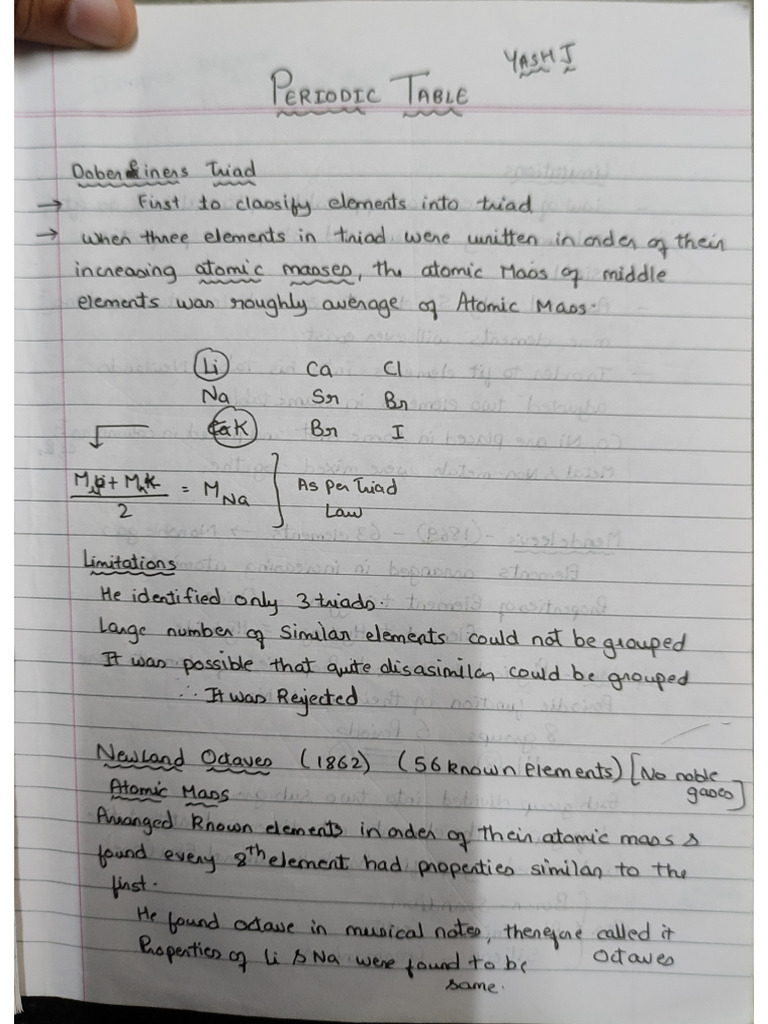 YASH J
PERIODIC TABLE
Dobereiners Triad
→ First to classify elements into triad
→ When three elements in triad were written in order of their
increasing atomic masses, the atomic Mass of middle
elements was roughly average of Atomic Mass.
Li Ca Cl
Na Sr Br
K Br I
M + M K / 2 = M Na ] As per Triad
Law
Limitations
He identified only 3 triads.
Large number of similar elements could not be grouped
It was possible that quite disasimilar could be grouped
∴ It was Rejected
Newland Octaves (1862) (56 known elements) [No noble
gases]
Atomic Mass
Arranged Known elements in order of their atomic mass &
found every 8th element had properties similar to the
first.
He found octave in musical notes, therefore called it
Octaves
Properties of Li & Na were found to be
same.